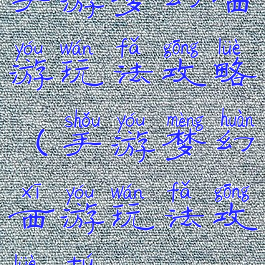 手游梦幻西
yóu wán fǎ gōng lüè
游玩法攻略
shǒu yóu mèng huàn
(手游梦幻
xī yóu wán fǎ gōng
西游玩法攻